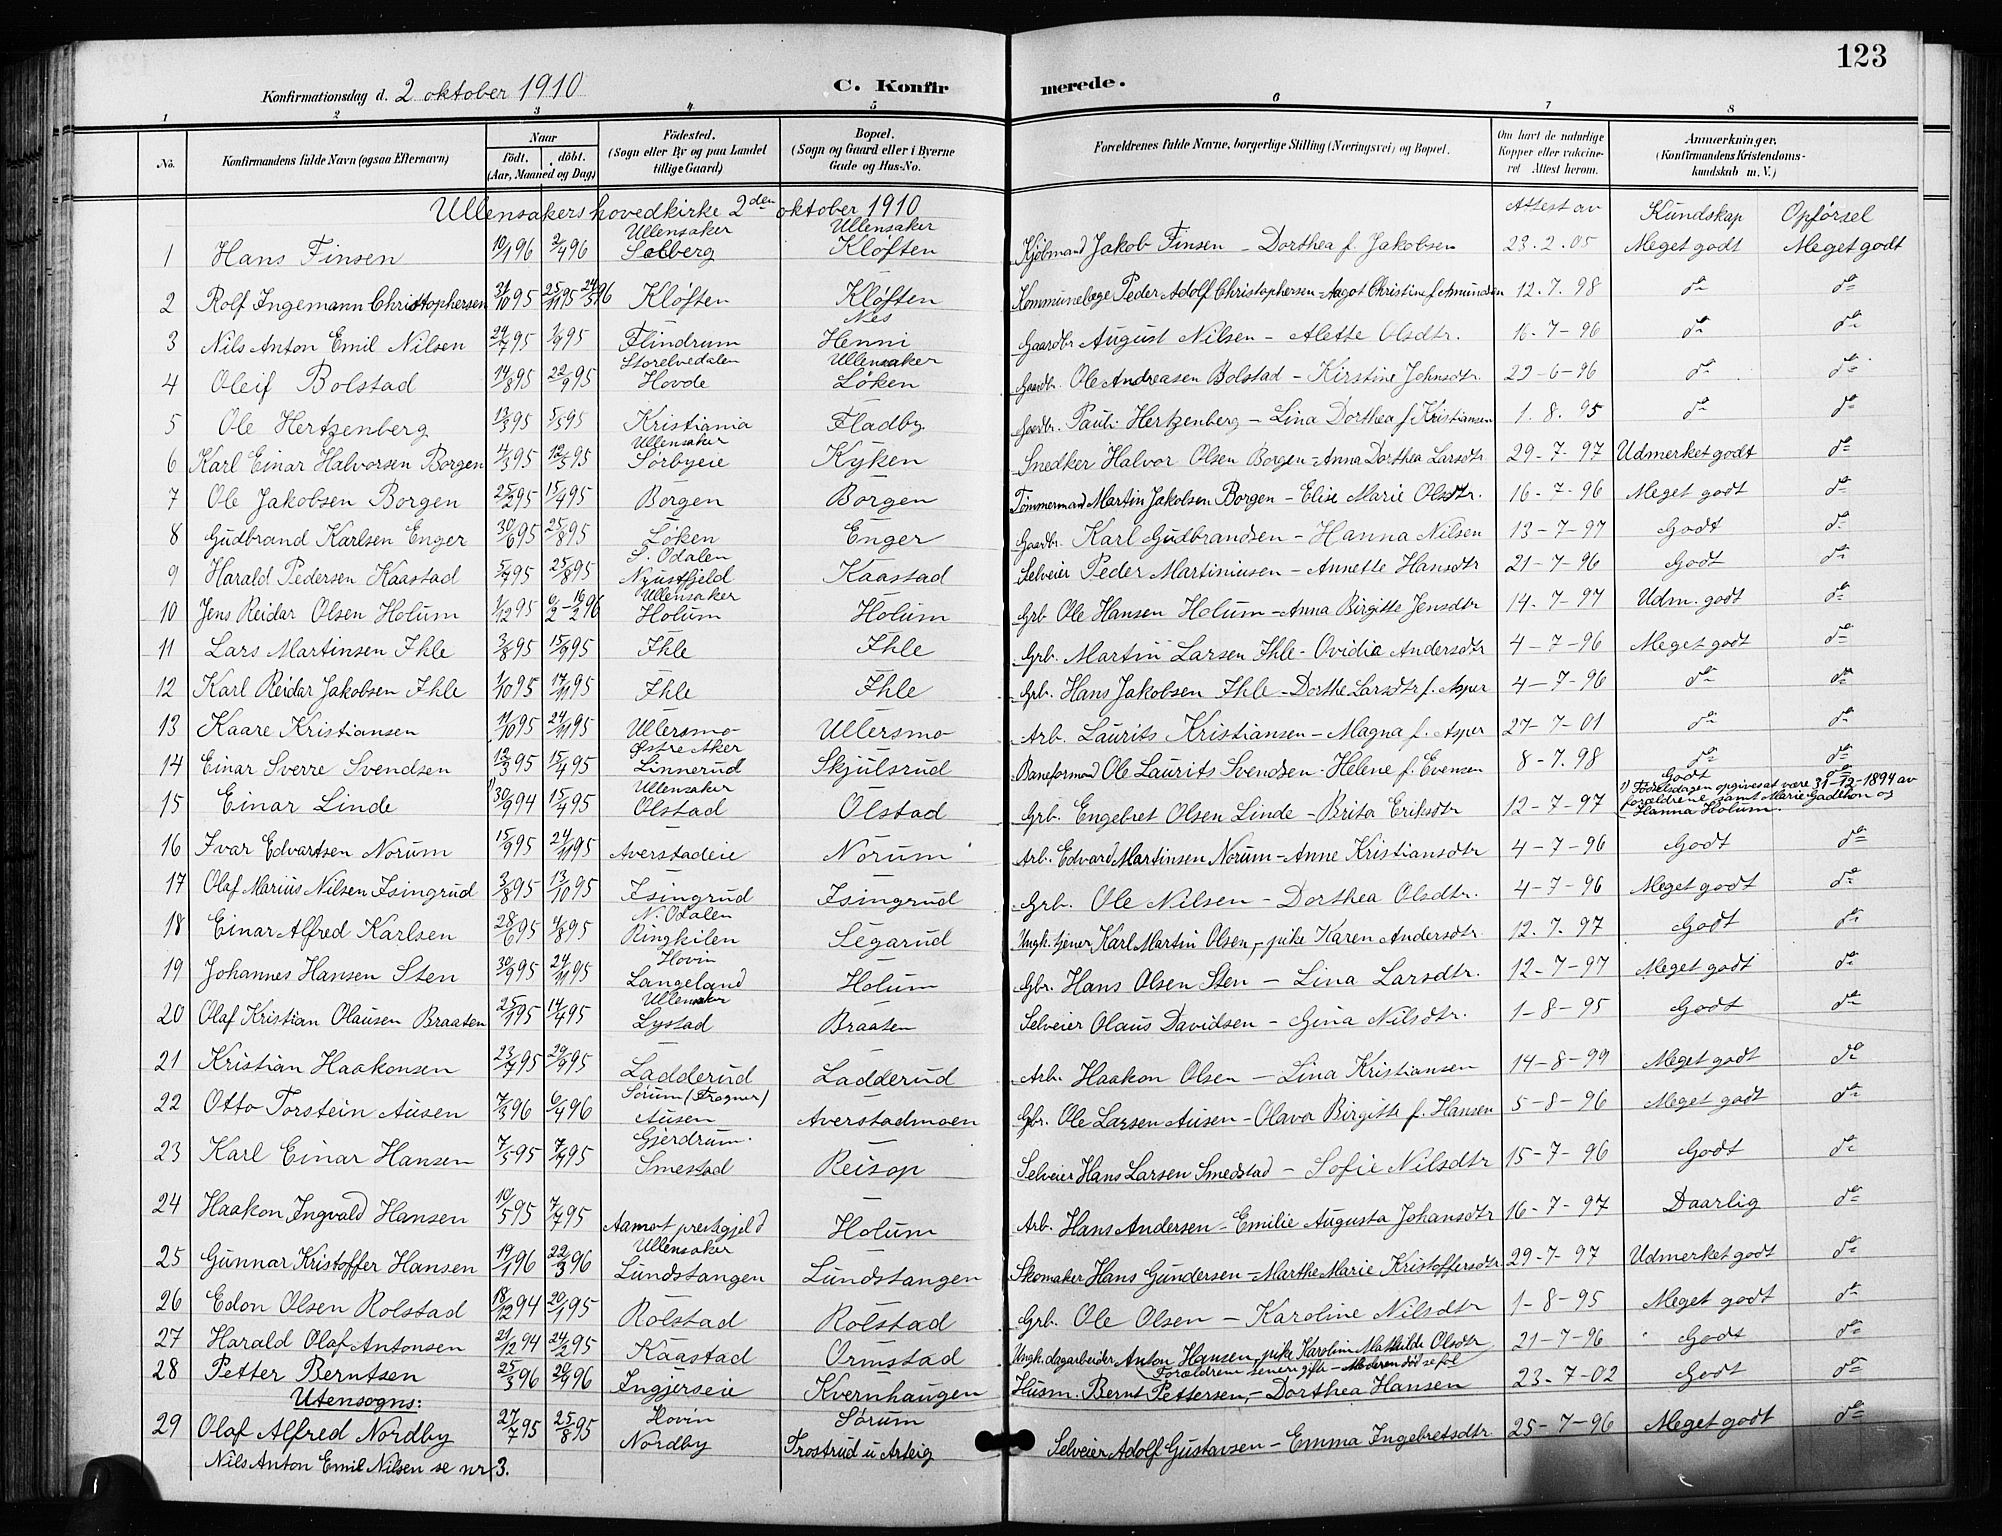 123
Konfirmationsdag d. 2 oktober 1910
C. Konfirmerede.
1 2 3 4 5 6 7 8
No. Konfirmandens fulde Navn (ogsaa Efternavn) Naar födt. döbt. (Aar, Maaned og Dag) Födested. (Sogn eller By og paa Landet tillige Gaard) Bopæl. (Sogn og Gaard eller i Byerne Gade og Hus-No. Forældrenes fulde Navne, borgerlige Stilling (Næringsvei) og Bopæl. Om havt de naturlige Kopper eller vakcineret Attest herom. Anmærkninger, (Konfirmandens Kristendomskundskab m. V.)
Ullensakers hovedkirke 2den oktober 1910 Attest av Kundskap Opførsel
1 Hans Finsen 10/1 96 2/4 96 Ullensaker Solberg Ullensaker Kløften Kjøbmand Jakob Finsen – Dorthea f. Jakobsen 23.2.05 Meget godt Meget godt
2 Rolf Ingemann Christophersen 31/10 95 25/11 95 24/5 96 Kløften Kløften Kommunelæge Peder Adolf Christophersen – Aagot Christine f. Amundsen 12.7.98 do do
3 Nils Anton Emil Nilsen 24/7 95 1/9 95 Flindrum Nes Henni Gaardbr. August Nilsen – Alette Olsdtr. 16-7-96 do do
4 Oleif Bolstad 14/8 95 22/9 95 Storelvedalen Hovde Ullensaker Løken Gaardbr. Ole Andreasen Bolstad – Kirstine Johnsdtr. 29-6-96 do do
5 Ole Hertzenberg 13/3 95 5/5 95 Kristiania Fladby Gaardbr. Pauli Hertzenberg – Lina Dorthea f. Kristiansen 1.8.95 do do
6 Karl Einar Halvorsen Borgen 4/3 95 12/5 95 Ullensaker Sørbyeie Kyken Snedker Halvor Olsen Borgen – Anna Dorthea Larsdtr 29-7-97 Udmerket godt do
7 Ole Jakobsen Borgen 25/2 95 15/4 95 Borgen Borgen Tømmermand Martin Jakobsen Borgen – Elise Marie Olsdtr. 16-7-96 Meget godt do
8 Gudbrand Karlsen Enger 30/6 95 25/8 95 Løken Enger Gaardbr. Karl Gudbrandsen – Hanna Nilsen 13-7-97 Godt do
9 Harald Pedersen Kaastad 5/7 95 25/8 95 S. Odalen Kaastad Selveier Peder Martiniusen – Annette Hansdtr 21-7-96 Godt do
10 Jens Reidar Olsen Holum 1/12 95 9/2 – 16/2 96 Ullensaker Holum Holum Grb. Ole Hansen Holum – Anna Birgitte Jensdtr 14.7-97 Udm. godt do
11 Lars Martinsen Ihle 3/8 95 15/9 95 Ihle Ihle Grb. Martin Larsen Ihle – Ovidia Andersdtr 4-7-96 Meget godt do
12 Karl Reidar Jakobsen Ihle 1/10 95 17/11 95 Ihle Ihle Grb. Hans Jakobsen Ihle – Dorthe Larsdtr f. Asper 4-7-96 do do
13 Kaare Kristiansen 11/10 95 24/11 95 Ullersmo Ullersmo Arb. Laurits Kristiansen – Magna f. Asper 27-7-01 do do
14 Einar Sverre Svendsen 12/3 95 15/4 95 Østre Aker Linnerud Skjulsrud Baneformand Ole Laurits Svendsen – Helene f. Evensen 8-7.98 do do
15 Einar Linde 1) 30/9 94 15/4 95 Ullensaker Olstad Olstad Grb. Engebret Olsen Linde – Brita Eriksdtr 12-7-97 Godt do
1) Fødselsdagen opgives at være 31-12-1894 av forældrene samt Marie Gadeton og Hanna Holum
16 Ivar Edvartsen Norum 15/9 95 24/11 95 Averstadeie Norum Arb. Edvard Martinsen Norum – Anne Kristiansdtr 4-7-96 Godt do
17 Olaf Marius Nilsen Isingrud 3/8 95 13/10 95 Isingrud Isingrud Grb. Ole Nilsen – Dorthea Olsdtr. 4-7-96 Meget godt do
18 Einar Alfred Karlsen 28/6 95 4/8 95 N. Odalen Ringkilen Segarud Ungk. tjener Karl Martin Olsen, – pike Karen Andersdtr. 12.7.97 Godt do
19 Johannes Hansen Sten 30/9 95 24/11 95 Hovin Langeland Holum Gbr. Hans Olsen Sten – Lina Larsdtr. 12-7-97 Meget godt do
20 Olaf Kristian Olausen Braaten 25/1 95 14/4 95 Ullensaker Lystad Braaten Selveier Olaus Davidsen – Gina Nilsdtr. 1-8-95 Godt do
21 Kristian Haakonsen 23/7 95 29/9 95 Ladderud Ladderud Arb. Haakon Olsen – Lina Kristiansen 14-8-99 Meget godt do
22 Otto Torstein Ausen 7/3 96 6/4 96 Sørum (Frogner) Ausen Averstadmoen Gbr. Ole Larsen Ausen – Olava Birgitte f. Hansen 5-8-96 Meget godt do
23 Karl Einar Hansen 7/5 95 7/7 95 Gjerdrum. Smestad Reisop Selveier Hans Larsen Smedstad – Sofie Nilsdtr 15-7-96 Godt do
24 Haakon Ingvald Hansen 10/5 95 7/7 95 Aamot prestegjeld Holum Arb. Hans Andersen – Emilie Augusta Johansdtr 16-7-97 Daarlig do
25 Gunnar Kristoffer Hansen 19/1 96 22/3 96 Ullensaker Lundstangen Lundstangen Skomaker Hans Gundersen – Marthe Marie Kristoffersdtr. 29-7-97 Udmerket godt do
26 Edon Olsen Rolstad 18/12 94 20/1 95 Rolstad Rolstad Grb. Ole Olsen – Karoline Nilsdtr 1-8-95 Meget godt do
27 Harald Olaf Antonsen 21/12 94 24/2 95 Kaastad Ormstad Ungk. dagarbeider Anton Hansen, pike Karolin Mathilde Olsdtr 21-7-96 Godt do
(Forældrene senere gifte – Moderen død
28 Petter Berntsen 25/3 96 20/4 96 Ingjerseie Kvernhaugen Husm. Bernt Pettersen, – Dorthea Hansen 23.7-02 Godt do
Utensogns:
29 Olaf Alfred Nordby 27/7 95 25/8 95 Hovin Nordby Sørum Frostrud u Arteig Selveier Adolf Gustavsen – Emma Ingebretsdtr 25-7-96 Meget godt do
Nils Anton Emil Nilsen se nr 3.